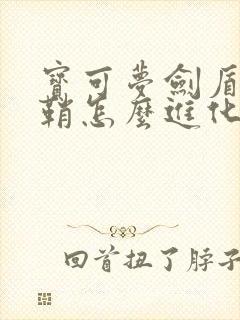 寶可夢劍盾
鞘怎麼進化
回首扭了脖子